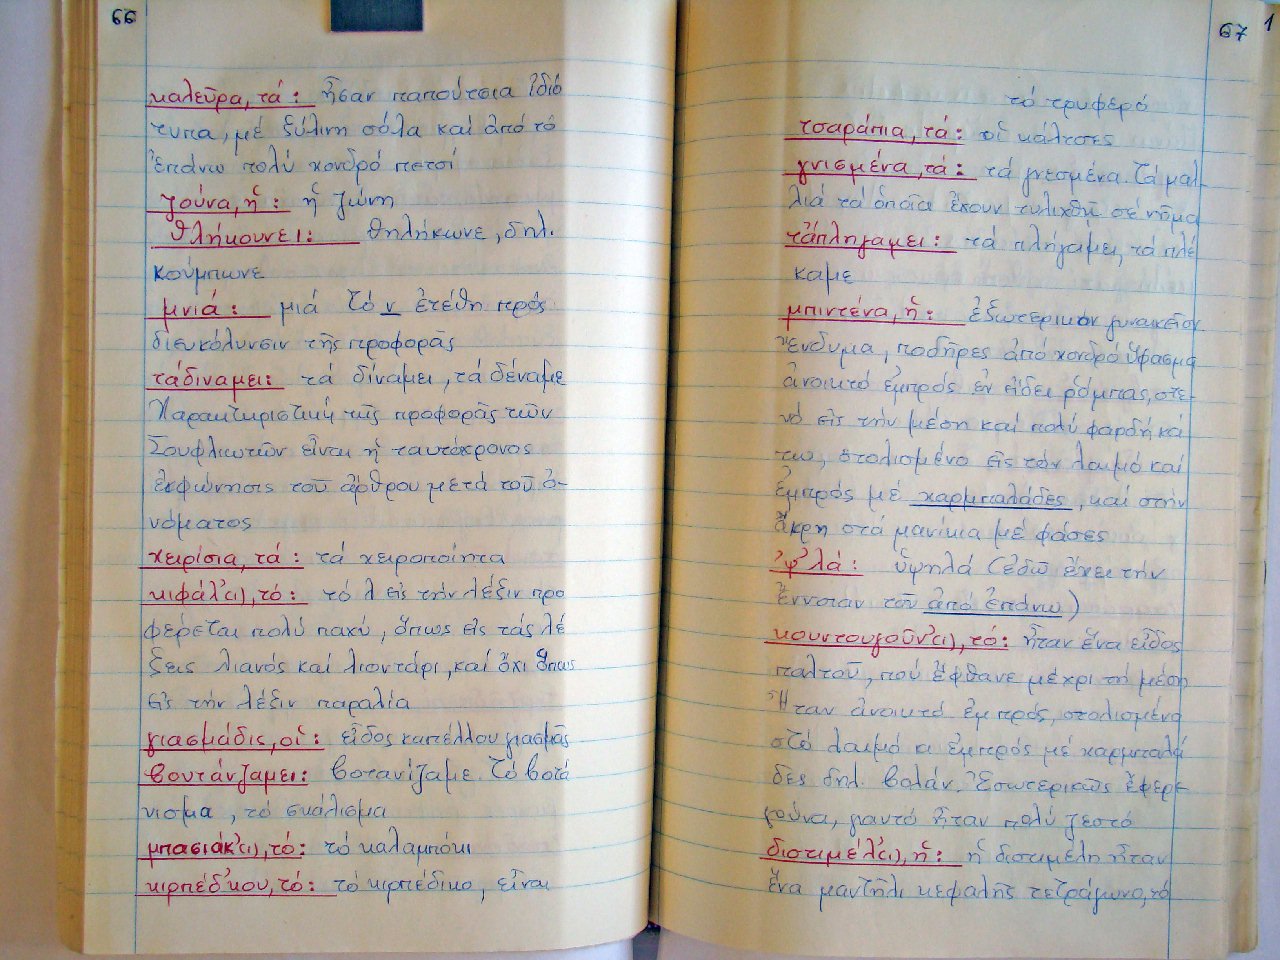 66
καλεῦρα, τά: ἦσαν παπούτσια ἰδιό
τυπα, μέ ξύλινη σόλα καί ἀπό τό
ἐπάνω πολύ χονδρό πετσί
ζούνα, ἡ: ἡ ζώνη
θλήκουνει: θηλήκωνε, δηλ.
κούμπωνε
μνιά: μιά Τό ν ἐτέθη πρός
διευκόλυνσιν τῆς προφορᾶς
τάδιναμει: τά δίναμει, τά δέναμε
Χαρακτηριστική τῆς προφορᾶς τῶν
Σουφλιωτῶν εἶναι ἡ ταυτόχρονος
ἐκφώνησις τοῦ ἄρθρου μετά τοῦ ὀ-
νόματος
χειρίσια, τά: τά χειροποίητα
κιφάλ'(ι), τό: τό λ εἰς τήν λέξιν προ
φέρεται πολύ παχύ, ὅπως εἰς τάς λέ
ξεις λιανός καί λιοντάρι, καί ὄχι ὅπως
εἰς τήν λέξιν παραλία
γιασμάδις, οἱ: εἶδος καπέλλου γιασμᾶς
βουτάνζαμει: βοτανίζαμε. Τό βοτά
νισμα, τό σκάλισμα
μπασιάκ'(ι), τό: τό καλαμπόκι
κιρπέδ'κου, τό: τό κιρπέδικο, εἶναι
67
1
τό τρυφερό
τσαράπια, τά: οἱ κάλτσες
γνισμένα, τά: τά γνεσμένα. Τά μαλ-
λιά τά ὁποῖα ἔχουν τυλιχθῆ σέ νῆμα
τἀπλήγαμει: τά πλήγαμει, τά πλέ
καμε
μπιντένα, ἡ: ἐξωτερικόν γυναικεῖον
ἔνδυμα, ποδῆρες ἀπό χονδρό ὕφασμα
ἀνοικτό ἐμπρός ἐν εἴδει ρόμπας, στε-
νό εἰς τήν μέση καί πολύ φαρδή κά
τω, στολισμένο εἰς τόν λαιμό καί
ἐμπρός μέ χαρμπαλάδες, καί στήν
ἄκρη στά μανίκια μέ φάσες
'ψ'λά: ὑψηλά (ἐδῶ ἔχει τήν
ἔννοιαν τοῦ ἀπό ἐπάνω)
κουντουγοῦν'(ι), τό: ἦταν ἕνα εἶδος
παλτοῦ, πού ἔφθανε μέχρι τή μέση
Ἦταν ἀνοικτό ἐμπρός, στολισμένο
στό λαιμό κι ἐμπρός μέ χαρμπαλά
δες δηλ. βολάν. Ἐσωτερικῶς ἔφερε
γούνα, γιαυτό ἦταν πολύ ζεστό
διστιμέλ'(ι), ἡ: ἡ διστιμέλη ἦταν
ἕνα μαντῆλι κεφαλῆς τετράγωνο, τό